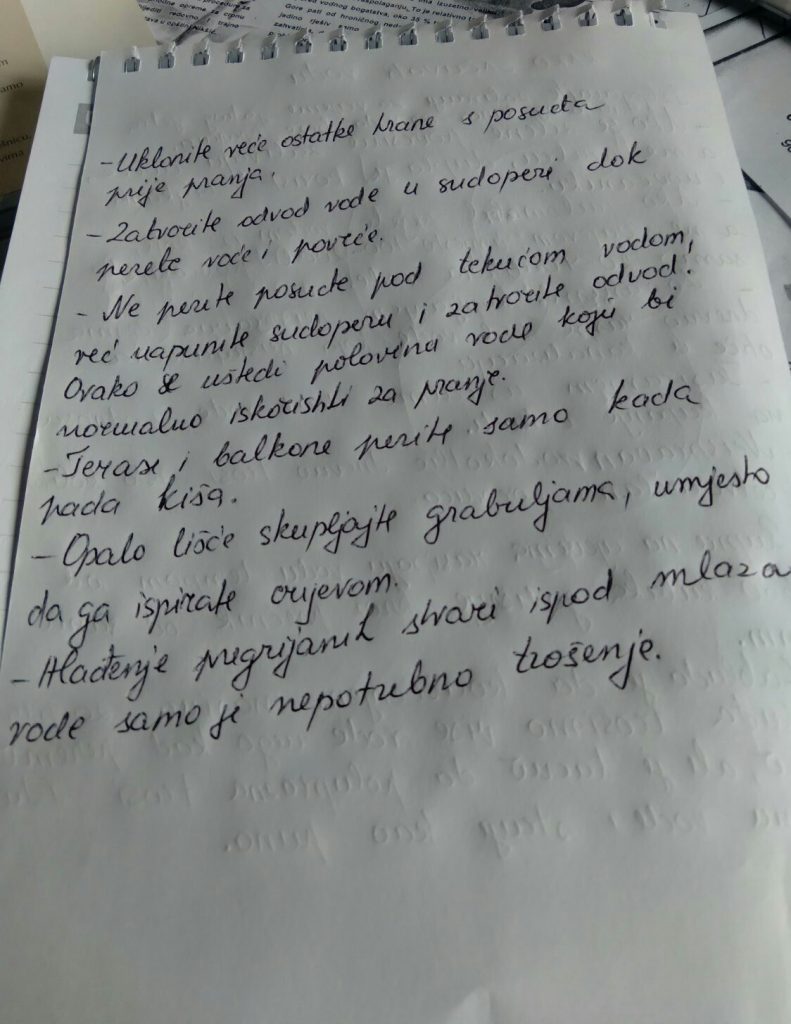 hroničnog ned
- Uklonite veće ostatke hrane s posuđa
prije pranja.
- Zatvorite odvod vode u sudoperi dok
perete voće i povrće.
- Ne perite posuđe pod tekućom vodom,
već napunite sudoperu i zatvorite odvod.
Ovako se uštedi polovina vode koju bi
normalno iskorishli za pranje.
- Terase i balkone perite samo kada
pada kiša.
- Opalo lišće skupljajte grabuljama, umjesto
da ga ispirate crijevom.
- Hlađenje pregrijanih stvari ispod mlaza
vode samo je nepotrebno trošenje.